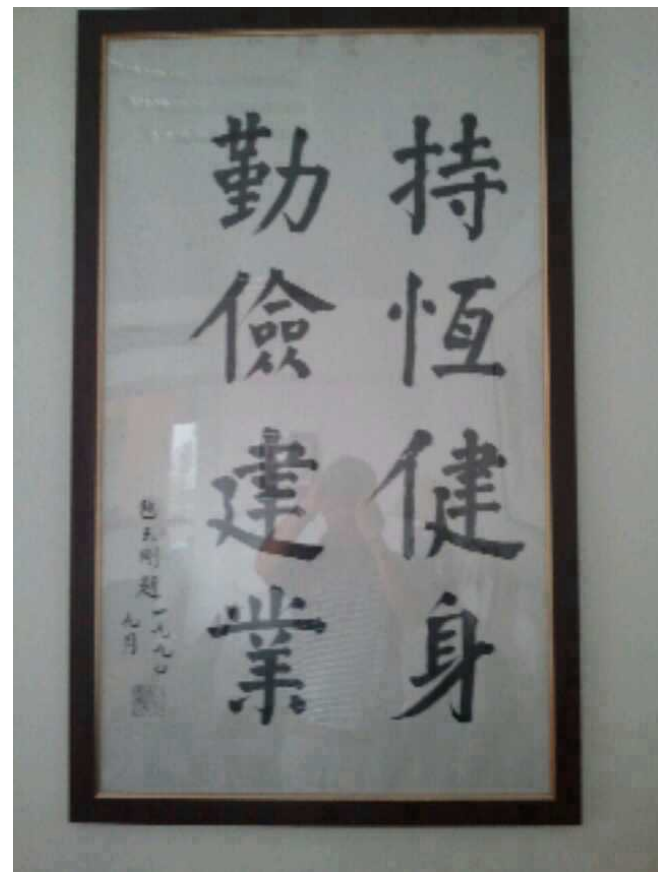 持恆健身
勤儉建業
包玉剛題 一九九〇
九月